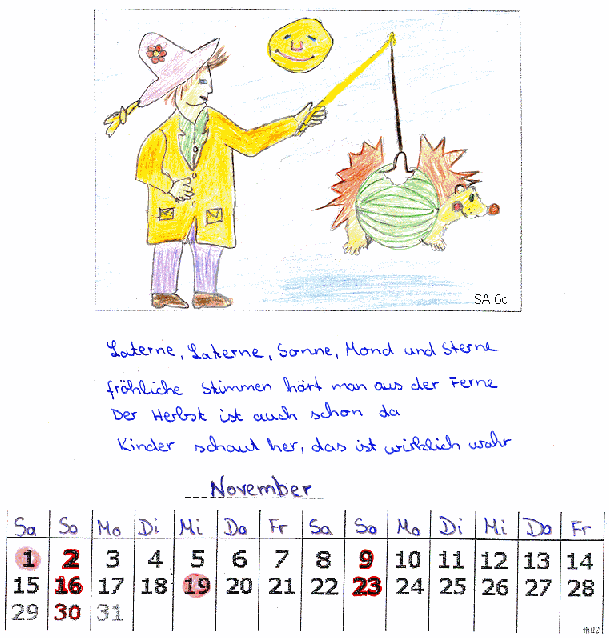 SA Oc
Laterne, Laterne, Sonne, Mond und Sterne
fröhliche Stimmen hört man aus der Ferne
Der Herbst ist auch schon da
Kinder schaut her, das ist wirklich wahr
November
Sa So Mo Di Mi Do Fr Sa So Mo Di Mi Do Fr
1 2 3 4 5 6 7 8 9 10 11 12 13 14
15 16 17 18 19 20 21 22 23 24 25 26 27 28
29 30 31